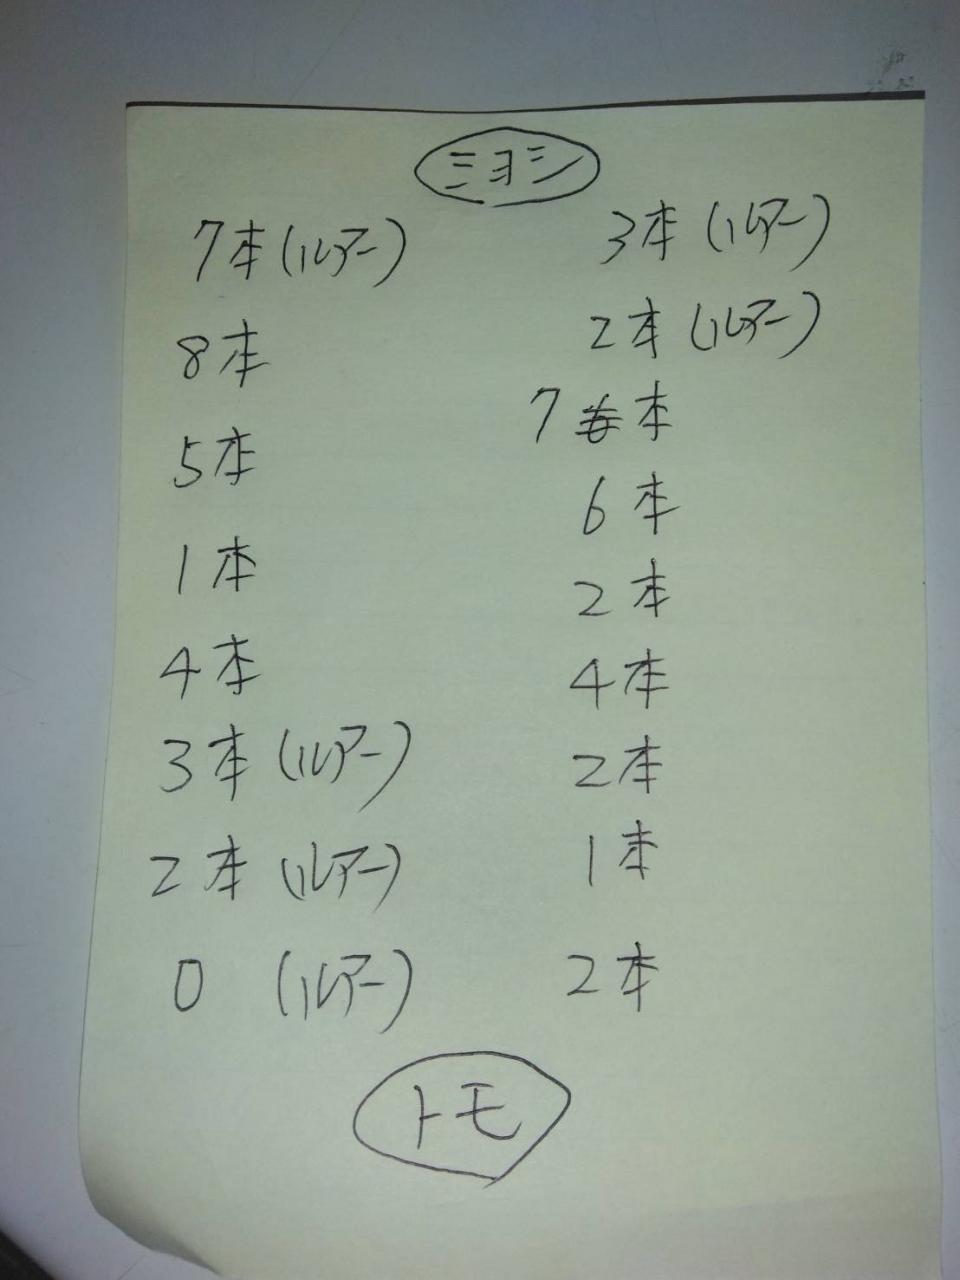 ミヨシ
7本(ルアー) 3本(ルアー)
8本 2本(ルアー)
5本 7本
1本 6本
4本 2本
3本(ルアー) 4本
2本(ルアー) 2本
0 (ルアー) 1本
2本
トモ